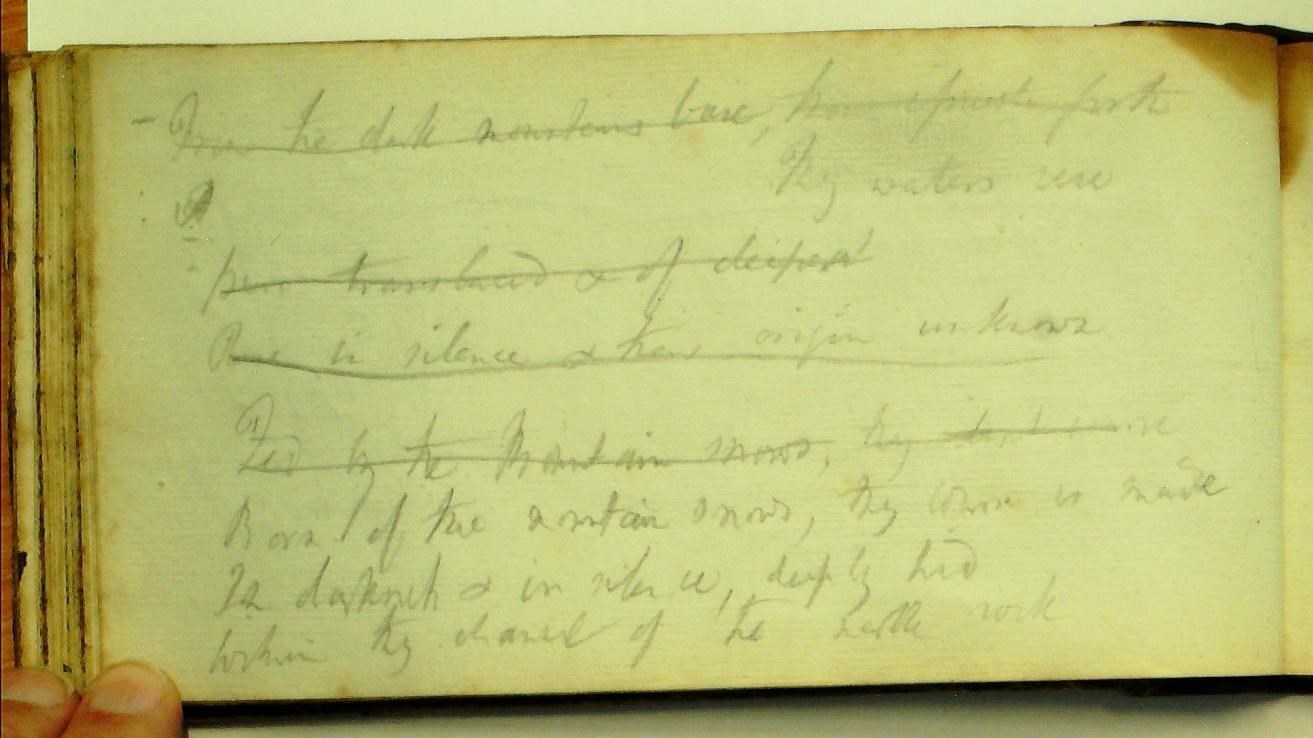 - From the dark mountains base, forth
Thy waters rise
translucid & of deepest
Rose in silence & their origin unknown
Fed by the Mountain snows, thy
Born of the mountain snows, thy course is made
In darkness & in silence, deeply hid
Within thy channel of the marble rock